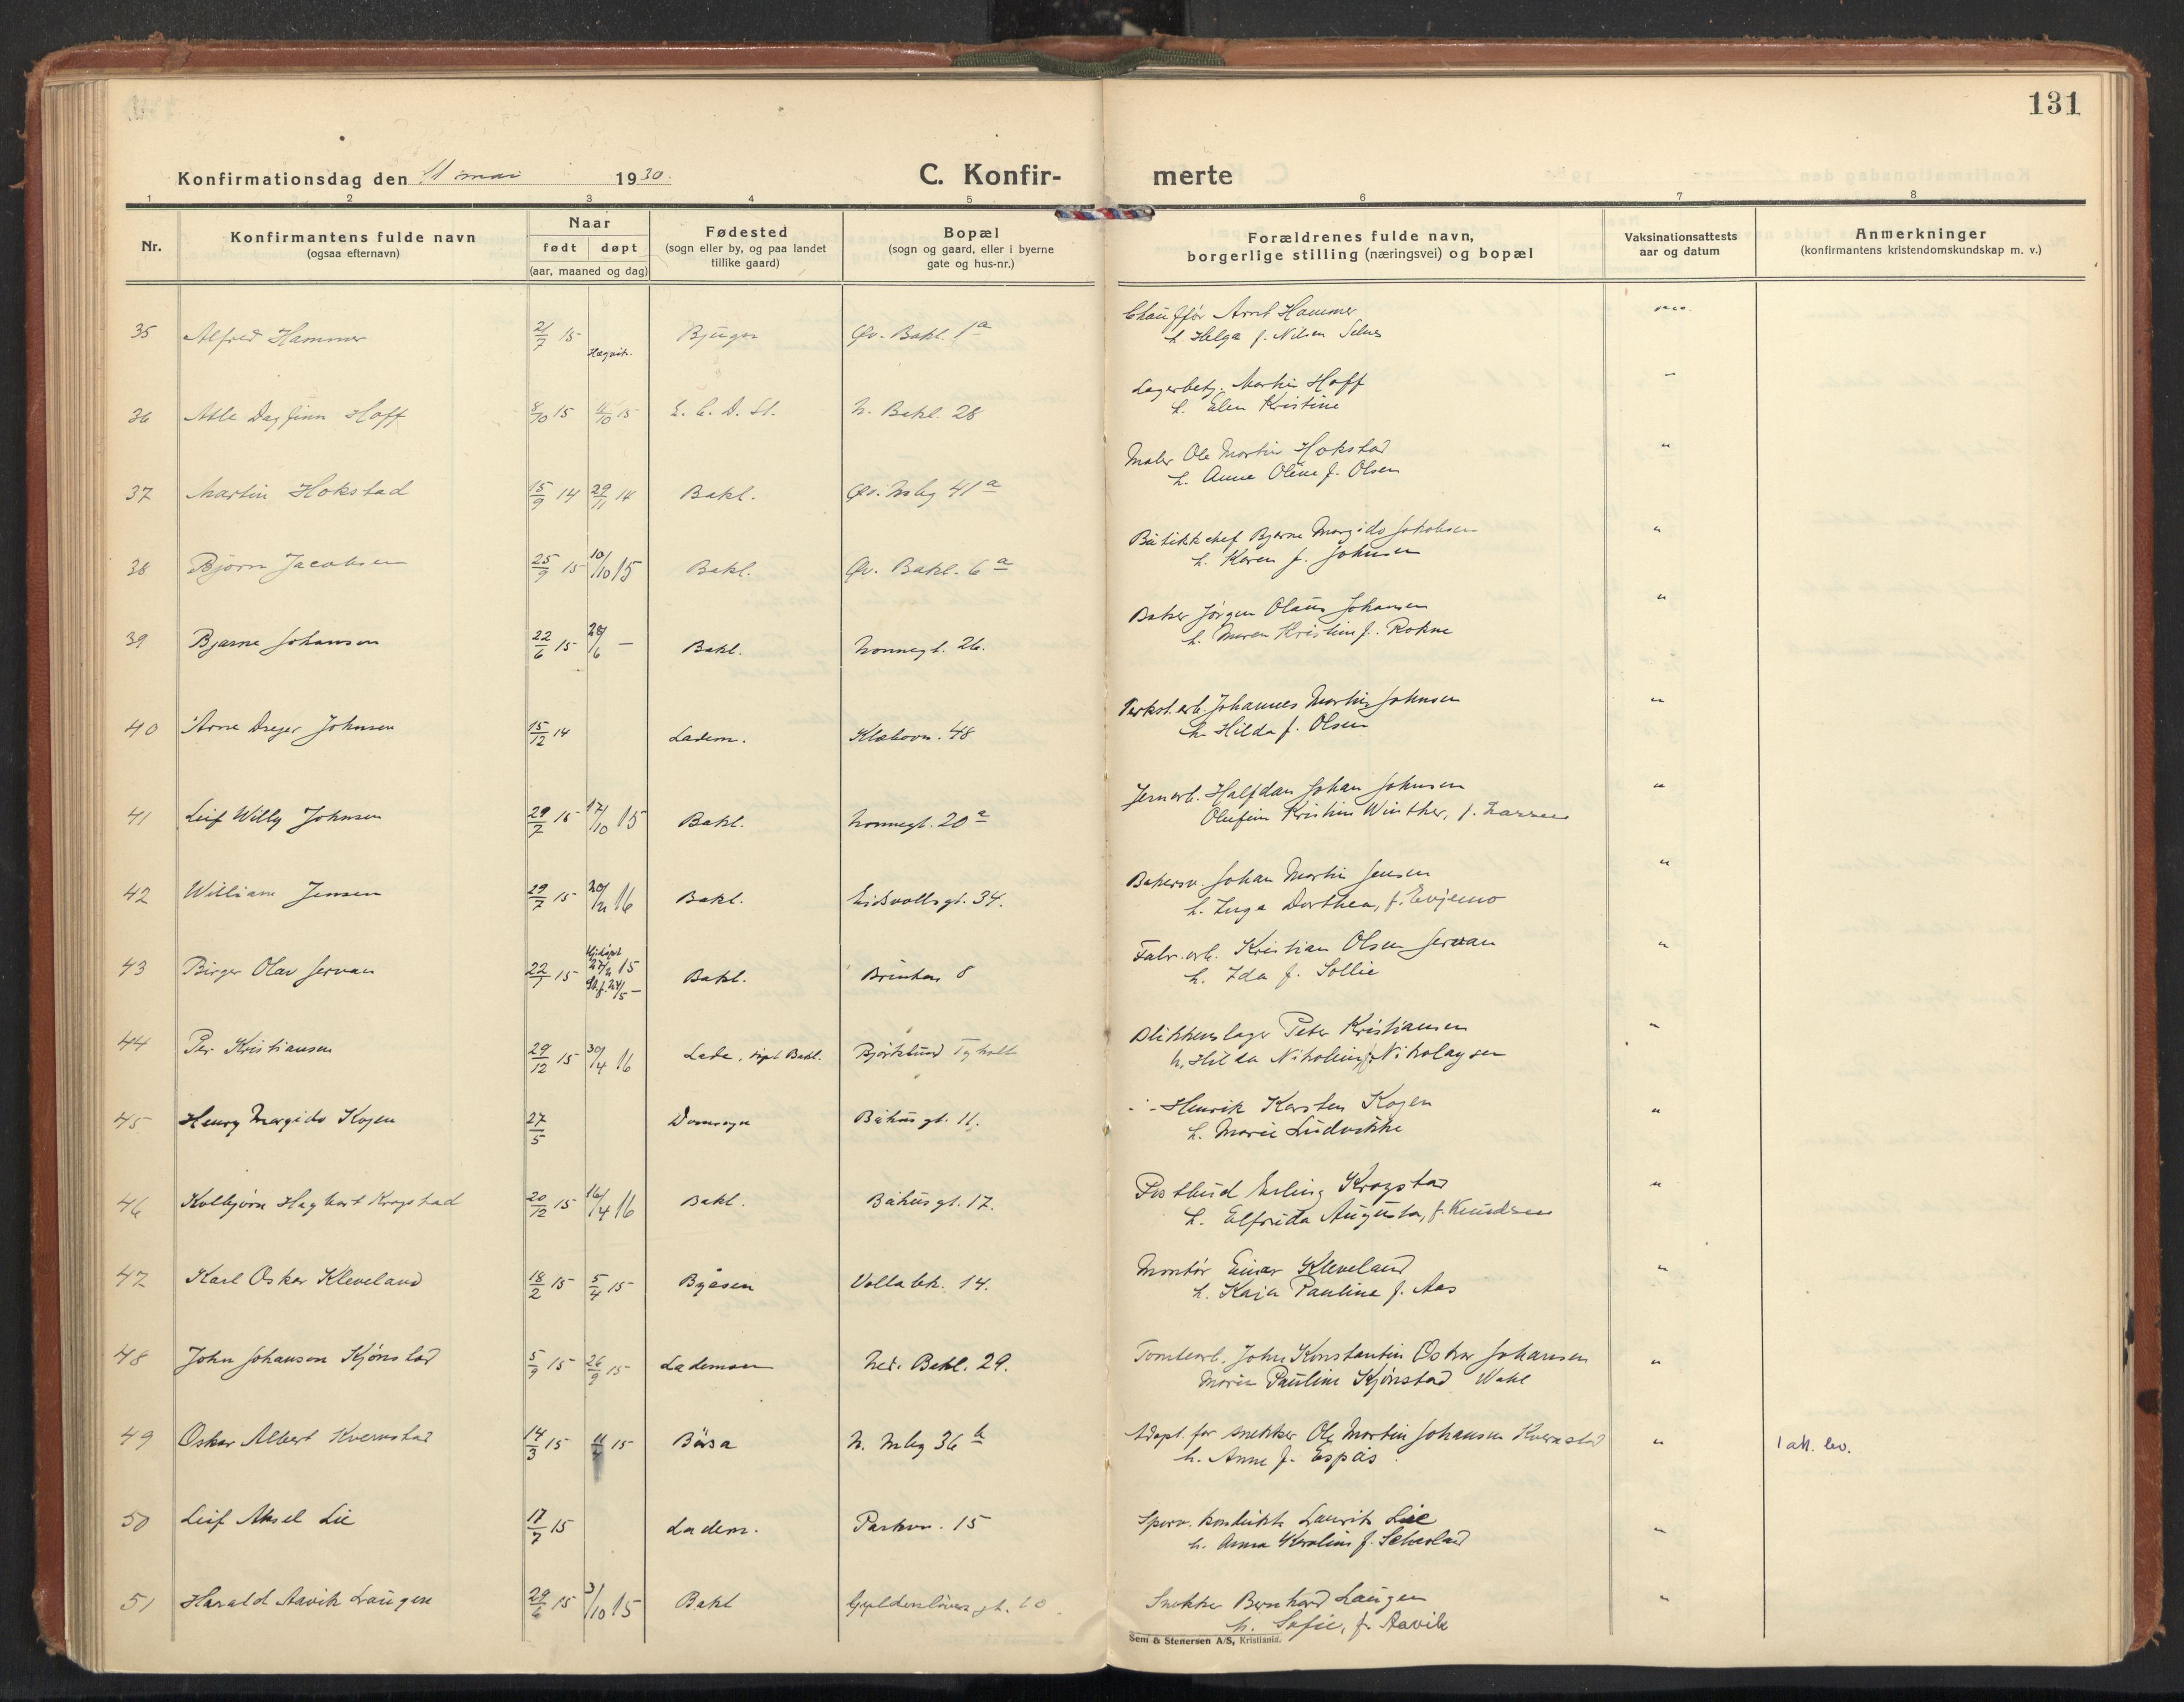 131
Konfirmationsdag den 11 mai 1930. C. Konfir- merte
1 2 3 4 5 6 7 8
Nr. Konfirmantens fulde navn (ogsaa efternavn) Naar født døpt (aar, maaned og dag) Fødested (sogn eller by, og paa landet tillike gaard) Bopæl (sogn og gaard, eller i byerne gate og hus-nr.) Forældrenes fulde navn, borgerlige stilling (næringsvei) og bopæl Vaksinationsattests aar og datum Anmerkninger (konfirmantens kristendomskundskap m. v.)
35 Alfred Hammer 21/7 15 Bjugn Øv. Bakl. 1a Chauffør Arnt Hammer
h. Helga f. Nilsen Selnes
36 Atle Dagfinn Hoff 8/10 15 15 E. C. D. St. N. Bakl. 28 Lagerbetj. Martin Hoff "
h. Elen Kristine
37 Martin Hokstad 15/9 14 29/11 14 Bakl. Øv. 41a Maler Ole Martin Hokstad "
h. Anna Oline f. Olsen
38 Bjørn Jacobsen 25/9 15 10/10 15 Bakl. Øv. Bakl. 6a Butikkchef Bjarne Margido Jakobsen "
h. Karen f. Johnsen
39 Bjarne Johansen 22/6 15 28/6 — Bakl. Nonnegt. 26. Baker Jørgen Olaus Johansen "
h. Maren Kristine f. Rokne
40 Arne Dreyer Johnsen 15/12 14 Ladem. Klæbovn. 48 Verkst.arb. Johannes Martin Johnsen "
h. Hilda f. Olsen
41 Leif Willy Johnsen 29/7 15 17/10 15 Bakl. Nonnegt. 20a Jernarb. Halfdan Johan Johnsen "
Olufine Kristine Winther, f. Larsen
42 William Jensen 29/7 15 16 Bakl. Eidsvollsgt. 34. Bakersv. Johan Martin Jensen "
h. Inga Dorthea, f. Evjemo
43 Birger Olav Jervan 22/1 15 Hjdøpt 15
St.f. 24/5 — Bakl. Brinken 8 Fabr.arb. Kristian Olsen Jervan "
h. Ida f. Sollie
44 Per Kristiansen 29/12 15 30/4 16 Lade, døpt Bakl. Bjørklund Tyholt Blikkenslager Peter Kristiansen "
h. Hilda Nikoline f. Nikolaysen
45 Henry Margido Kojen 27/5 Domsogn Båhusgt. 11. -"- Henrik Karsten Kojen "
h. Marie Ludvikke
46 Kolbjørn Hagbart Krogstad 20/12 15 16/4 16 Bakl. Båhusgt. 17. Postbud Erling Krogstad "
h. Elfrida Augusta, f. Knudsen
47 Karl Oskar Kleveland 18/2 15 5/4 15 Byåsen Vollabk. 14. Montør Einar Kleveland "
h. Kaja Pauline f. Aas
48 John Johansen Kjønstad 5/9 15 26/9 15 Lademoen Ned. Bakl. 29. Tomtearb. John Konstantin Oskar Johansen "
Marie Pauline Kjønstad Wahl
49 Oskar Albert Kvernstad 14/3 15 11/4 15 Børsa N. 36b Adopt. for snekker Ole Martin Johansen Kvernstad " 1 att. lev.
h. Anne f. Espås
50 Leif Aksel Lie 17/7 15 Ladem. Parkvn. 15 Sporv. konduktør Laurits Lie "
h. Anna Karoline f.
51 Harald Aavik Laugen 29/6 15 3/10 15 Bakl Gyldenløvesgt. 10. Snekker Bernhard Laugen "
h. Sofie, f. Aavik
Sem & Stenersen A/S, Kristiania.